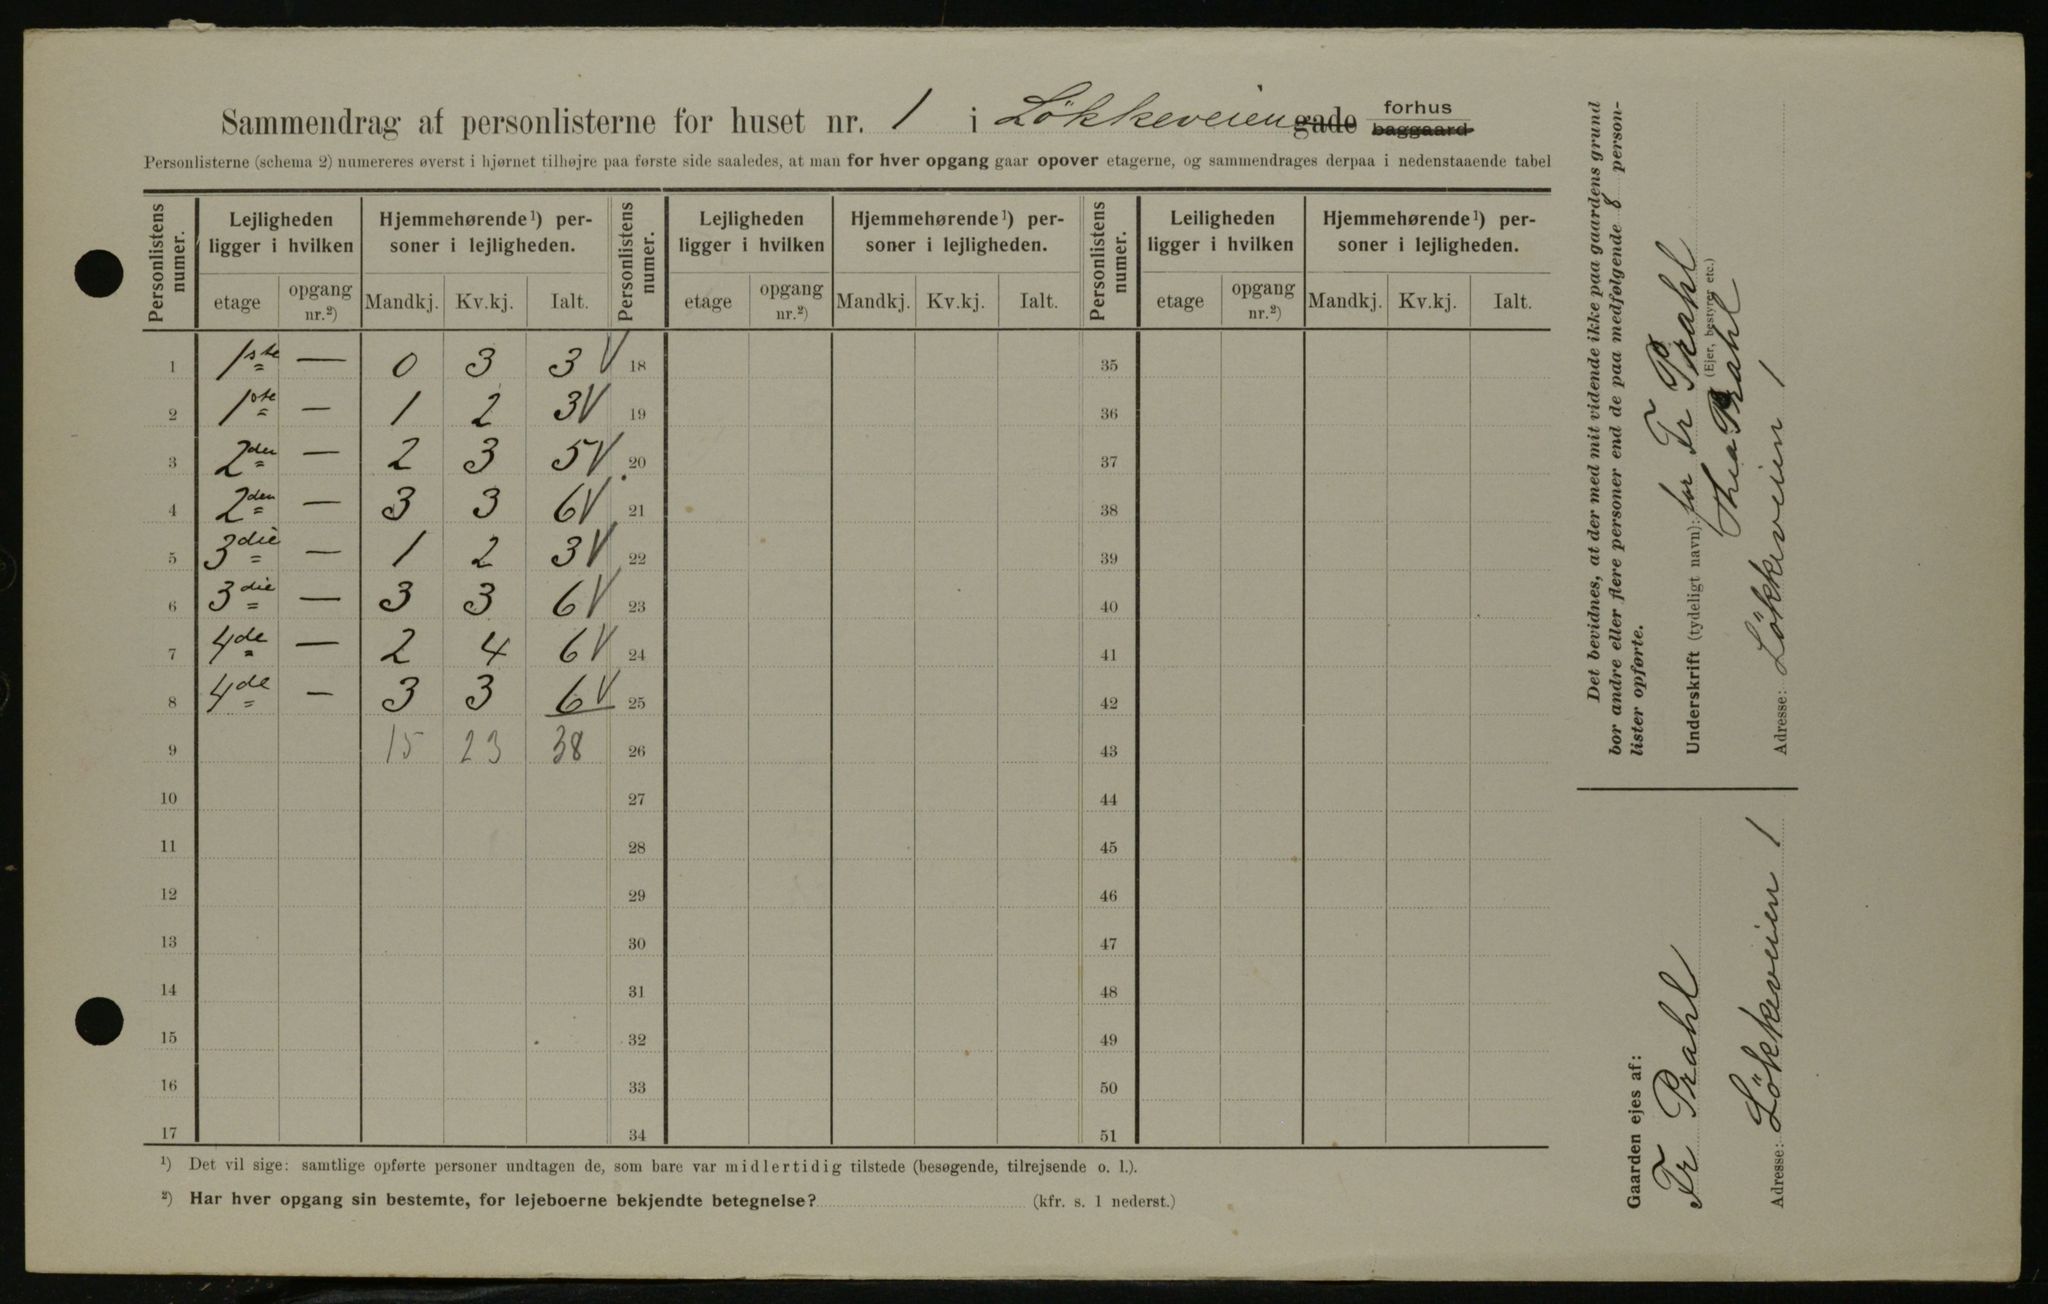 Sammendrag af personlisterne for huset nr. 1 i Løkkeveien gade forhus baggaard
Personlisterne (schema 2) numereres øverst i hjørnet tilhøjre paa første side saaledes, at man for hver opgang gaar opover etagerne, og sammendrages derpaa i nedenstaaende tabel
Personlistens numer. Lejligheden ligger i hvilken Hjemmehørende¹) personer i lejligheden. Personlistens numer. Lejligheden ligger i hvilken Hjemmehørende¹) personer i lejligheden. Personlistens numer. Leiligheden ligger i hvilken Hjemmehørende¹) personer i lejligheden.
etage opgang nr.²) Mandkj. Kv.kj. Ialt. etage opgang nr.²) Mandkj. Kv.kj. Ialt. etage opgang nr.²) Mandkj. Kv.kj. Ialt.
1 1ste — 0 3 3 V 18 35
2 1ste — 1 2 3 V 19 36
3 2den — 2 3 5 V 20 37
4 2den — 3 3 6 V 21 38
5 3die — 1 2 3 V 22 39
6 3die — 3 3 6 V 23 40
7 4de — 2 4 6 V 24 41
8 4de — 3 3 6 V 25 42
9 15 23 38 26 43
10 27 44
11 28 45
12 29 46
13 30 47
14 31 48
15 32 49
16 33 50
17 34 51
¹) Det vil sige: samtlige opførte personer undtagen de, som bare var midlertidig tilstede (besøgende, tilrejsende o. l.).
²) Har hver opgang sin bestemte, for lejeboerne bekjendte betegnelse? (kfr. s. 1 nederst.)
Det bevidnes, at der med mit vidende ikke paa gaardens grund
bor andre eller flere personer end de paa medfølgende 8 person-
lister opførte.
Underskrift (tydeligt navn): for Fr Prahl
(Ejer, bestyrer etc.)
Thea Prahl
Adresse: Løkkeveien 1
Gaarden ejes af:
Fr Prahl
Adresse: Løkkeveien 1